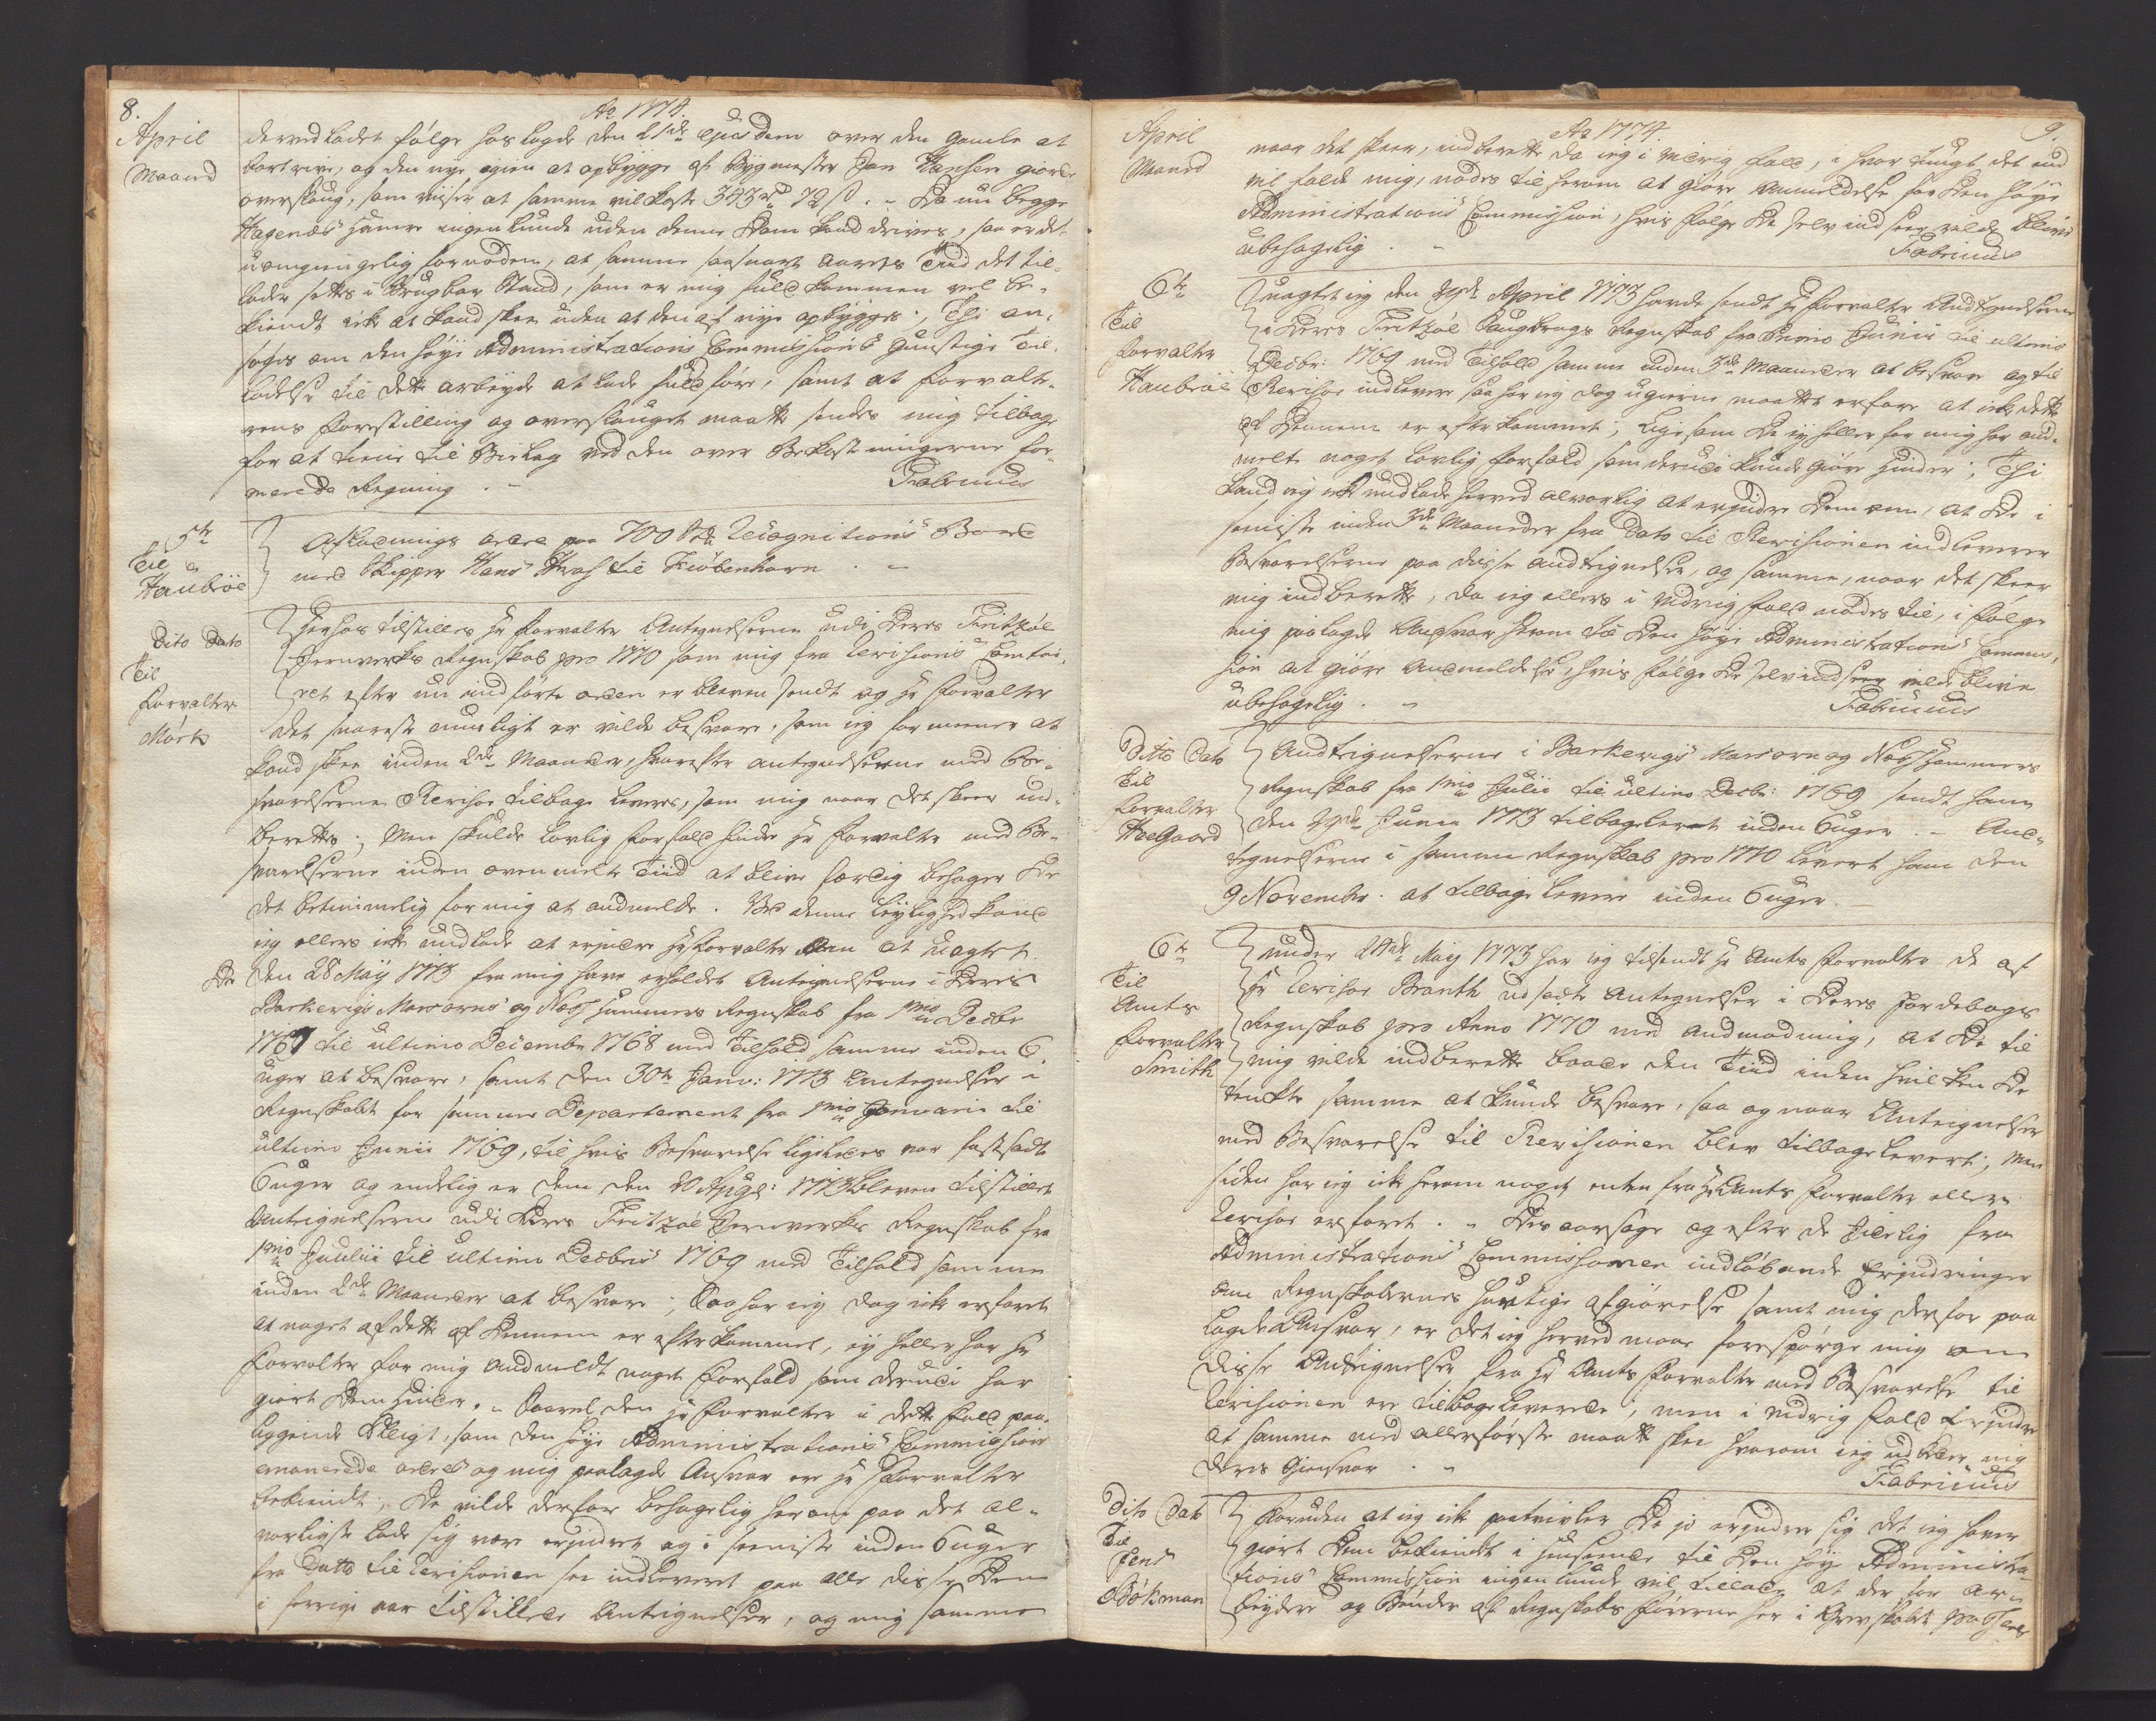 8.
Ao 1774.
April
Maaned
derved ladet følge hoslagde den 21de ejusdem over den gamle at
bortrive, og den nye igien at opbygge af Bygmester Jan Hansen giorde
overslaug, som viiser at samme vil koste 343 rd 72 s. - Da nu begge
Hagenæs Hamre ingenlunde uden denne Dam kand drives, saa er det
uomgiengelig fornøden, at samme saasnart Aarets Tiid det til-
lader settes i Brugbar Stand, som er mig fuldkommen vel be-
kiendt ick at kand skee uden at den af nye opbygges; Thi an-
søges om den høye Administrations Commissions gunstige Til-
ladelse til dette arbeyde at lade fuldføre, samt at Forvalte-
rens Forestilling og overslauget maatte sendes mig tilbage
for at tiene til Bielag ved den over Bekostningerne for-
merede Regning. -
Fabricius
5te
Til
Haubroe
Afladnings ordre paa 700 Recognitions Bord
med Skipper Hans til Kiøbenhavn. -
Dito Dato
Til
Forvalter
Mørk
Hoshos tilstilles Hr Forvalter Antegnelserne udi Deres Fritzøe
Jernverks Regnskab pro 1770 som mig fra Revisions Contoi-
ret efter nu indførte orden er bleven sendt og Hr Forvalter
det snareste mueligt er vilde besvare, som jeg formeener at
kand skee inden 2de Maaneder, hvorefter antegnelserne med Be-
svarelserne Revisor tilbage leveres, som mig naar det skeer ind-
berettes; Men skulde lovlig Forfald hindre Hr Forvalter med Be-
svarelserne inden ovenmelte Tiid at blive færdig behager De
det betimmelig for mig at andmelde. Ved denne leylighed kand
jeg ellers ick undlade at erindre Hr Forvalter om at uagtet
De den 28 Maÿ 1773 fra mig have erholdet Antegnelserne i Deres
Barkevigs Morvorns og Næs Hammers Regnskab fra 1mo Decbr
1767 til ultimo Decembr 1768 med Tilhold samme inden 6
uger at besvare, samt den 30te Janv: 1773 Antegnelser i
Regnskabet for samme Departement fra 1mo Januarii til
ultimo Junii 1769, til hvis Besvarelse ligeledes var fastsadt
6 uger og endelig er Dem den 20 Aprl: 1773 bleven tilstillet
Anteignelserne udi Deres Fritzøe Jernverks Regnskab fra
1mo Juulii til ultimo Decbris 1769 med Tilhold samme
inden 2de Maaneder at besvare; Saa har jeg dog ick erfaret
at noget af dette af Dennem er efterkommet, ey heller har Hr
Forvalter for mig andmeldt noget Forfald som derudi har
giort Dem Hinder. - Saavel den Hr Forvalter i dette Fald paa-
liggende Pligt, som den høye Administrations Commission
emanerede ordres og mig paalagde Ansvar er Hr Forvalter
bekiendt; De vilde derfor behagelig herom paa det al-
vorligste lade sig være erindret og i seeniste inden 6 uger
fra Dato til Revisionen see indleveret paa alle disse Dem
i forrige aar tilstillede Anteignelser, og mig samme
9.
Ao 1774
April
Maaned
naar det skeer, indberette da jeg i vidrig Fald, i hvor tungt det end
vil falde mig, nødes til herom at giøre anmeldelse for den høye
Administrations Commission, hvis Følge De selv indseer vilde blive
ubehagelig. -
Fabricius
6te
Til
Forvalter
Haubroe
Uagtet jeg den April 1773 havde sendt Hr Forvalter Andtegnelserne
i Deres Fritzøe Saugbrugs Regnskab fra Primo Junii til ultimo
Decbr: 1769 med Tilhold samme inden 3de Maaneder at besvare og til
Revisor indlevere saa har jeg dog ugierne maattet erfare at ick dette
af Dennem er efterkommet, ligesom De ey heller for mig har and-
meldt noget lovlig Forfald som derudi kunde giøre Hinder; Thi
kand jeg ick undlade herved alvorlig at erindre Dem om, at De i
seeniste inden 3de Maaneder fra Dato til Revisionen indleverer
Besvarelserne paa disse andteignelser, og samme, naar det skeer
mig indberette, da jeg ellers i vidrig Fald nødes til, i Følge
mig paalagde Ansvar herom til den høye Administrations Commis-
sion at giøre Andmeldelse, hvis Følge De selv indseer vilde blive
ubehagelig. -
Fabricius
Dito Dato
Til
Forvalter
Helgaard
Andteignelserne i Barkevigs Morvorn og Næs Hammers
Regnskab fra 1mo Julii til ultimo Decbr: 1769 sendt ham
den Junii 1773 tilbageleveret inden 6 uger. - And-
tegnelserne i samme Regnskab pro 1770 levert ham den
9 Novembr: at tilbage levere inden 6 uger. -
6te
Til
Amts
Forvalter
Smith
Under 24de May 1773 har jeg tilsendt Hr Amts Forvalter de af
Hr Revisor Branth udsadte Antegnelser i Deres Jordebogs
Regnskab pro Anno 1770 med andmodning, at De til
mig vilde indberette baade den Tiid inden hvilken De
tenkte samme at kunde besvare, saa og naar Anteignelser
med Besvarelse til Revisionen blev tilbagelevert; Men
siden har jeg ick herom noget enten fra Hr Amts Forvalter eller
Revisor erfaret. - Desaarsage og efter de jævnlig fra
Administrations Commissionen indløbende Erindringer
om Regnskabernes hurtige afgiørelse samt mig derfor paa
lagde Ansvar, er det jeg herved maae forespørge mig om
disse Anteignelser fra Hr Amts Forvalter med Besvarelse til
Revisionen ere tilbageleverede, men i vidrig Fald erindre
at samme med allerførste maatte skee hvorom jeg udbeder mig
Deres Giensvar. -
Fabricius
Dito Dato
Til
Jens
Bökman
Foruden at jeg ick paatvivler De jo erindrer sig det jeg haver
giort Dem bekiendt i henseende til den høye Administra-
tions Commission ingenlunde vil tillade at der for Ar-
beydere og Bønder af Regnskabs Førerne her i Grevskabet